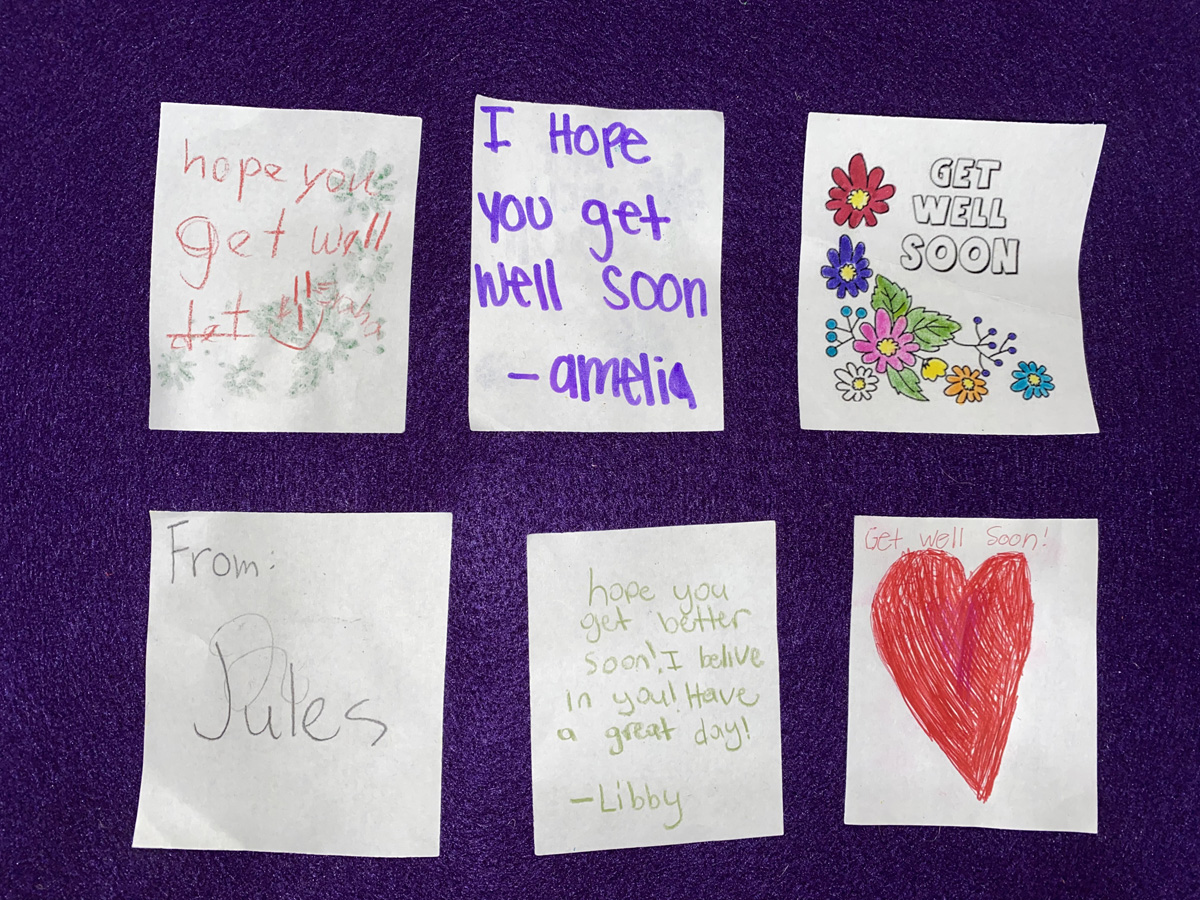 hope you
get well
I Hope
you get
well soon
- amelia
GET
WELL
SOON
From:
Jules
hope you
get better
soon!, I belive
in you! Have
a great day!
- Libby
Get well Soon!